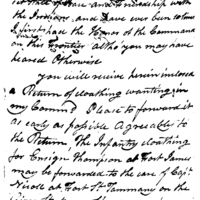 of Peace and Friendship with
the Indians, and have ever been so since
I first had the Honor of the Command
on this frontier altho' you may have
heared otherwise
you will receive herein inclosed
a Return of cloathing wanting in
my Comm'd Please to forward it
as early as possible Agreeable to
the Return, The Infantry cloathing
for Ensign Thompson at Fort James
may be forwarded to the care of Capt
Nicoll at Fort St. Tammany on the